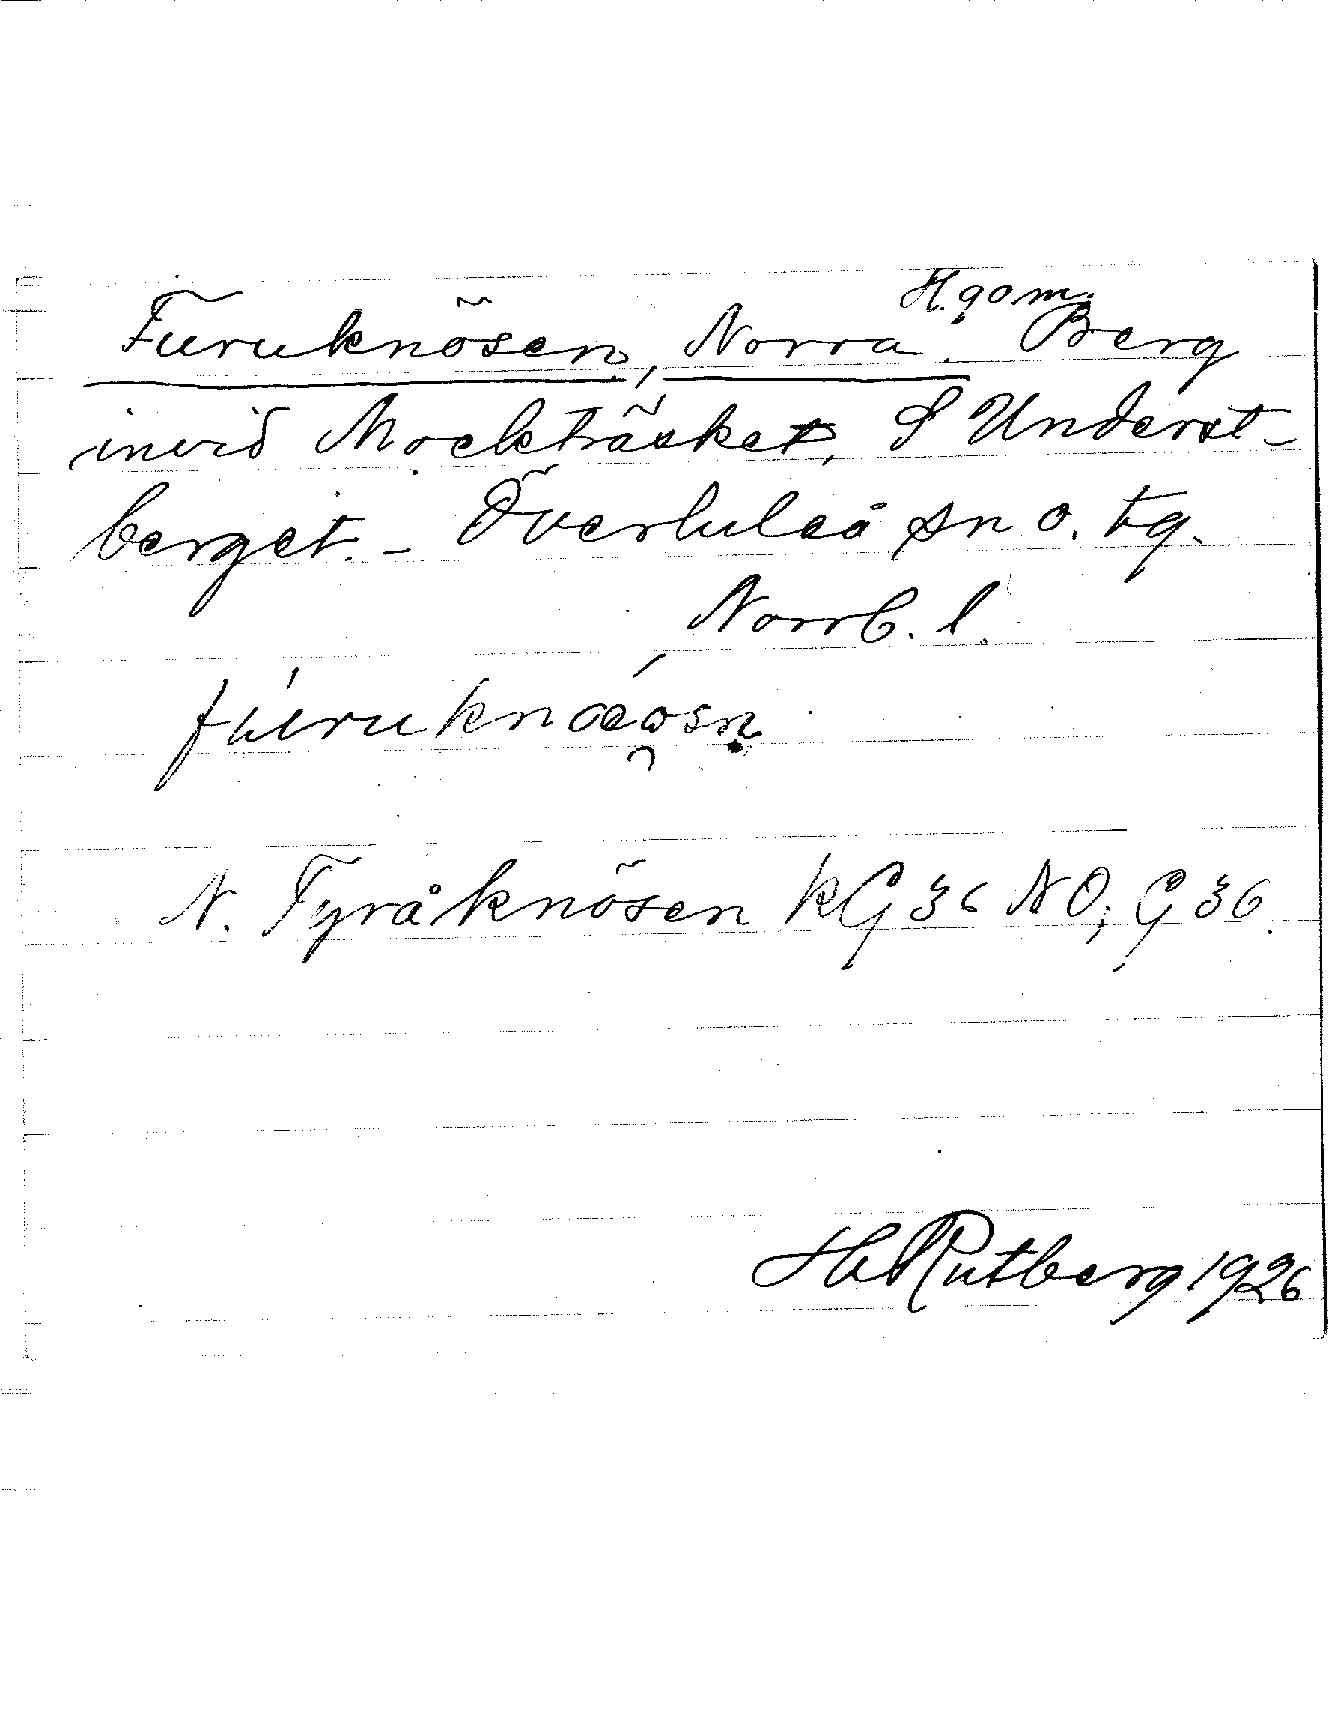 H. gam.
Furuknösen, Norra. Berg
invid Mockträsket, S Underst-
berget. - Överluleå sn o. tg.
Norrb. l.
N. Fyråknösen kG 36 NO; G 36.
H Rutberg 1926